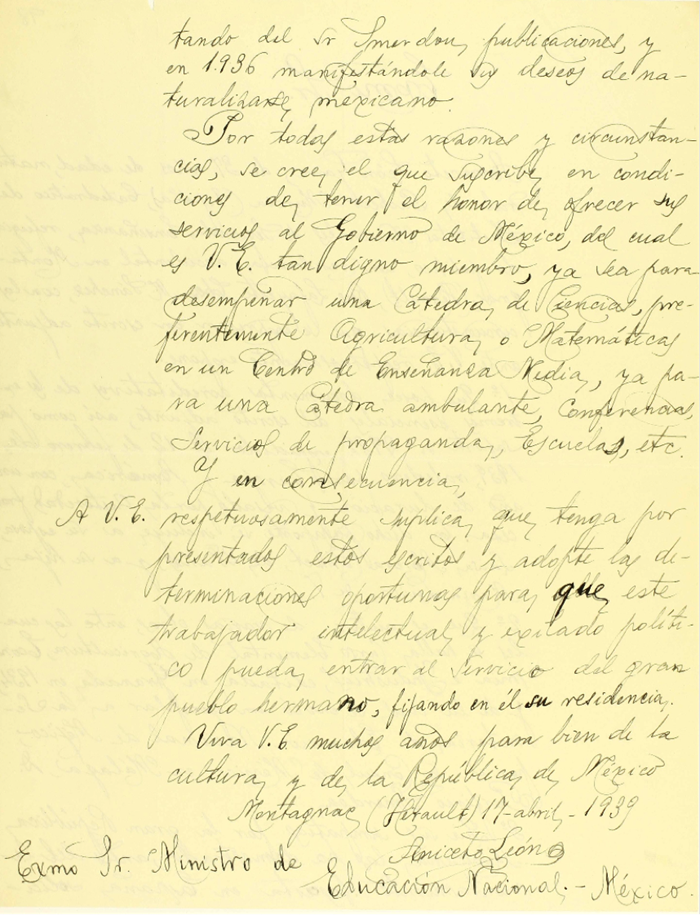 tando del Sr Smerdou, publicaciones, y
en 1.936 manifestándole sus deseos de na-
turalizarse mexicano.
Por todas estas razones y circunstan-
cias, se cree, el que suscribe, en condi-
ciones de, tener el honor de, ofrecer sus
servicios al Gobierno de México, del cual
es V.E. tan digno miembro, ya sea para
desempeñar una Cátedra, de Ciencias, pre-
ferentemente Agricultura, o Matemáticas
en un Centro de Enseñanza Media, ya pa-
ra una Cátedra ambulante, Conferencias,
Servicios de propaganda, Escuelas, etc.
Y en consecuencia,
A V.E. respetuosamente suplica, que, tenga por
presentados estos escritos y adopte las de-
terminaciones oportunas para, que, este
trabajador intelectual, y exilado políti-
co pueda, entrar al servicio del gran
pueblo hermano, fijando en él su residencia.
Viva V.E muchos años para bien de la
cultura, y de, la República, de, México
Montagnac, (Hérault) 17-abril,-1939
Aniceto León
Exmo Sr. Ministro de Educación Nacional.- México.